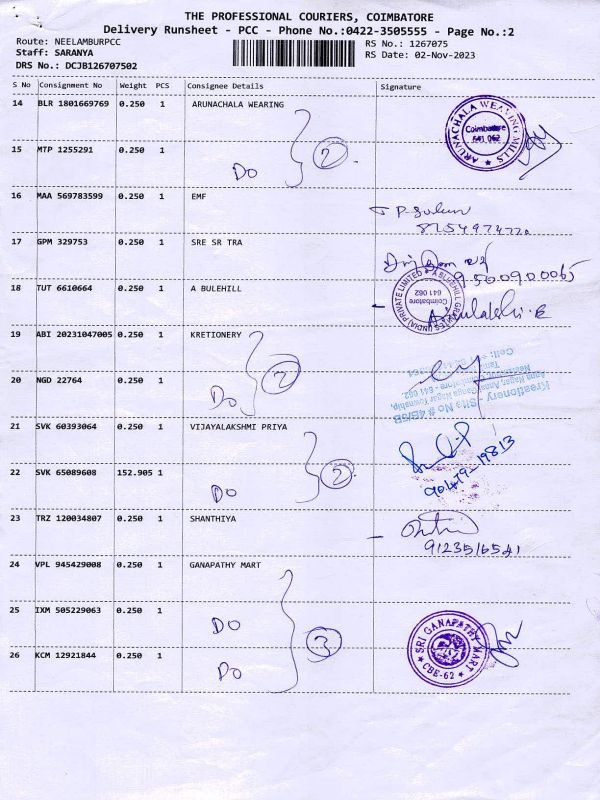 THE PROFESSIONAL COURIERS, COIMBATORE
Delivery Runsheet - PCC - Phone No.:0422-3505555 - Page No.:2
Route: NEELAMBURPCC
RS No.: 1267075
Staff: SARANYA
RS Date: 02-Nov-2023
DRS No.: DCJB126707502
S No Consignment No Weight PCS Consignee Details Signature
14 BLR 1801669769 0.250 1 ARUNACHALA WEARING
ARUNACHALA WEAVING MILLS
Coimbatore
641 062
2
15 MTP 1255291 0.250 1
DO
16 MAA 569783599 0.250 1 EMF
17 GPM 329753 0.250 1 SRE SR TRA
9500900065
18 TUT 6610664 0.250 1 A BULEHILL
A BLUEHILL GRANITES (INDIA) PRIVATE LIMITED
Coimbatore
641 062
19 ABI 20231047005 0.250 1 KRETIONERY
2
20 NGD 22764 0.250 1
DO
Kreationery - Site No # 4B/5B
21 SVK 60393064 0.250 1 VIJAYALAKSHMI PRIYA
2
22 SVK 65089608 152.905 1
DO
90479-19813
23 TRZ 120034807 0.250 1 SHANTHIYA
9123516541
24 VPL 945429008 0.250 1 GANAPATHY MART
25 IXM 505229063 0.250 1
DO
3
SRI GANAPATHY MART
CBE-62
26 KCM 12921844 0.250 1
DO